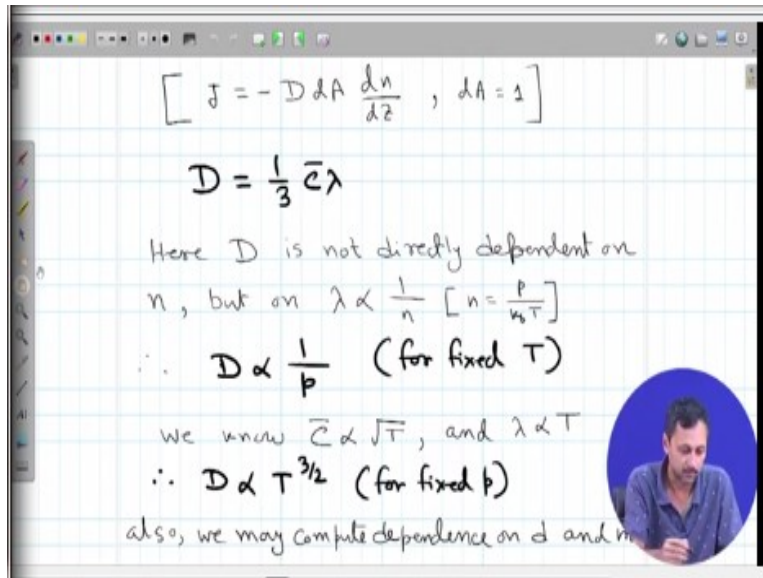 [ J = - D dA dn/dz , dA = 1 ]
D = 1/3 c̄ λ
Here D is not directly dependent on
n, but on λ ∝ 1/n [ n = p/k_bT ]
∴ D ∝ 1/p (for fixed T)
we know c̄ ∝ √T, and λ ∝ T
∴ D ∝ T^3/2 (for fixed p)
also, we may compute dependence on d and m